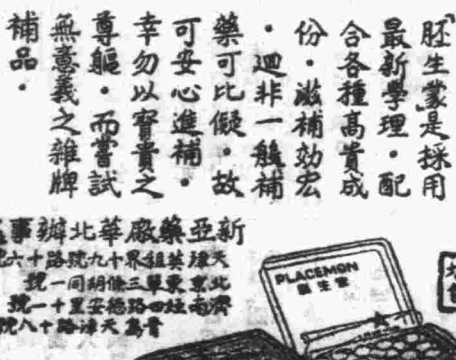 「胚生蒙」是採用
最新學理·配
合各種高貴成
份·滋補効宏
·迥非一般補
藥可比儗·故
可安心進補·
幸勿以寳貴之
尊軀·而嘗試
無意義之雜牌
補品·
新亞藥廠華北辦事
天津英租界十九號路十六號
北京東單三條胡同一號
濟南四路德安里十一號
青島天津路十八號
PLACEMON
胚生蒙